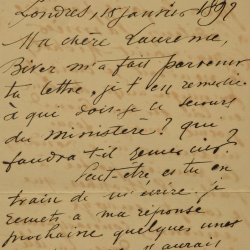 Londres, 18 janvier 1892
Ma chère Laure me
Biver m'a fait parvenir
ta lettre. je t'en remercie
à qui dois-je ce secours
du ministère? qui
faudra t'il remercier?
Peut-être es tu en
train de m'écrire. je
remets a ma réponse
prochaine quelques unes
j'aurais